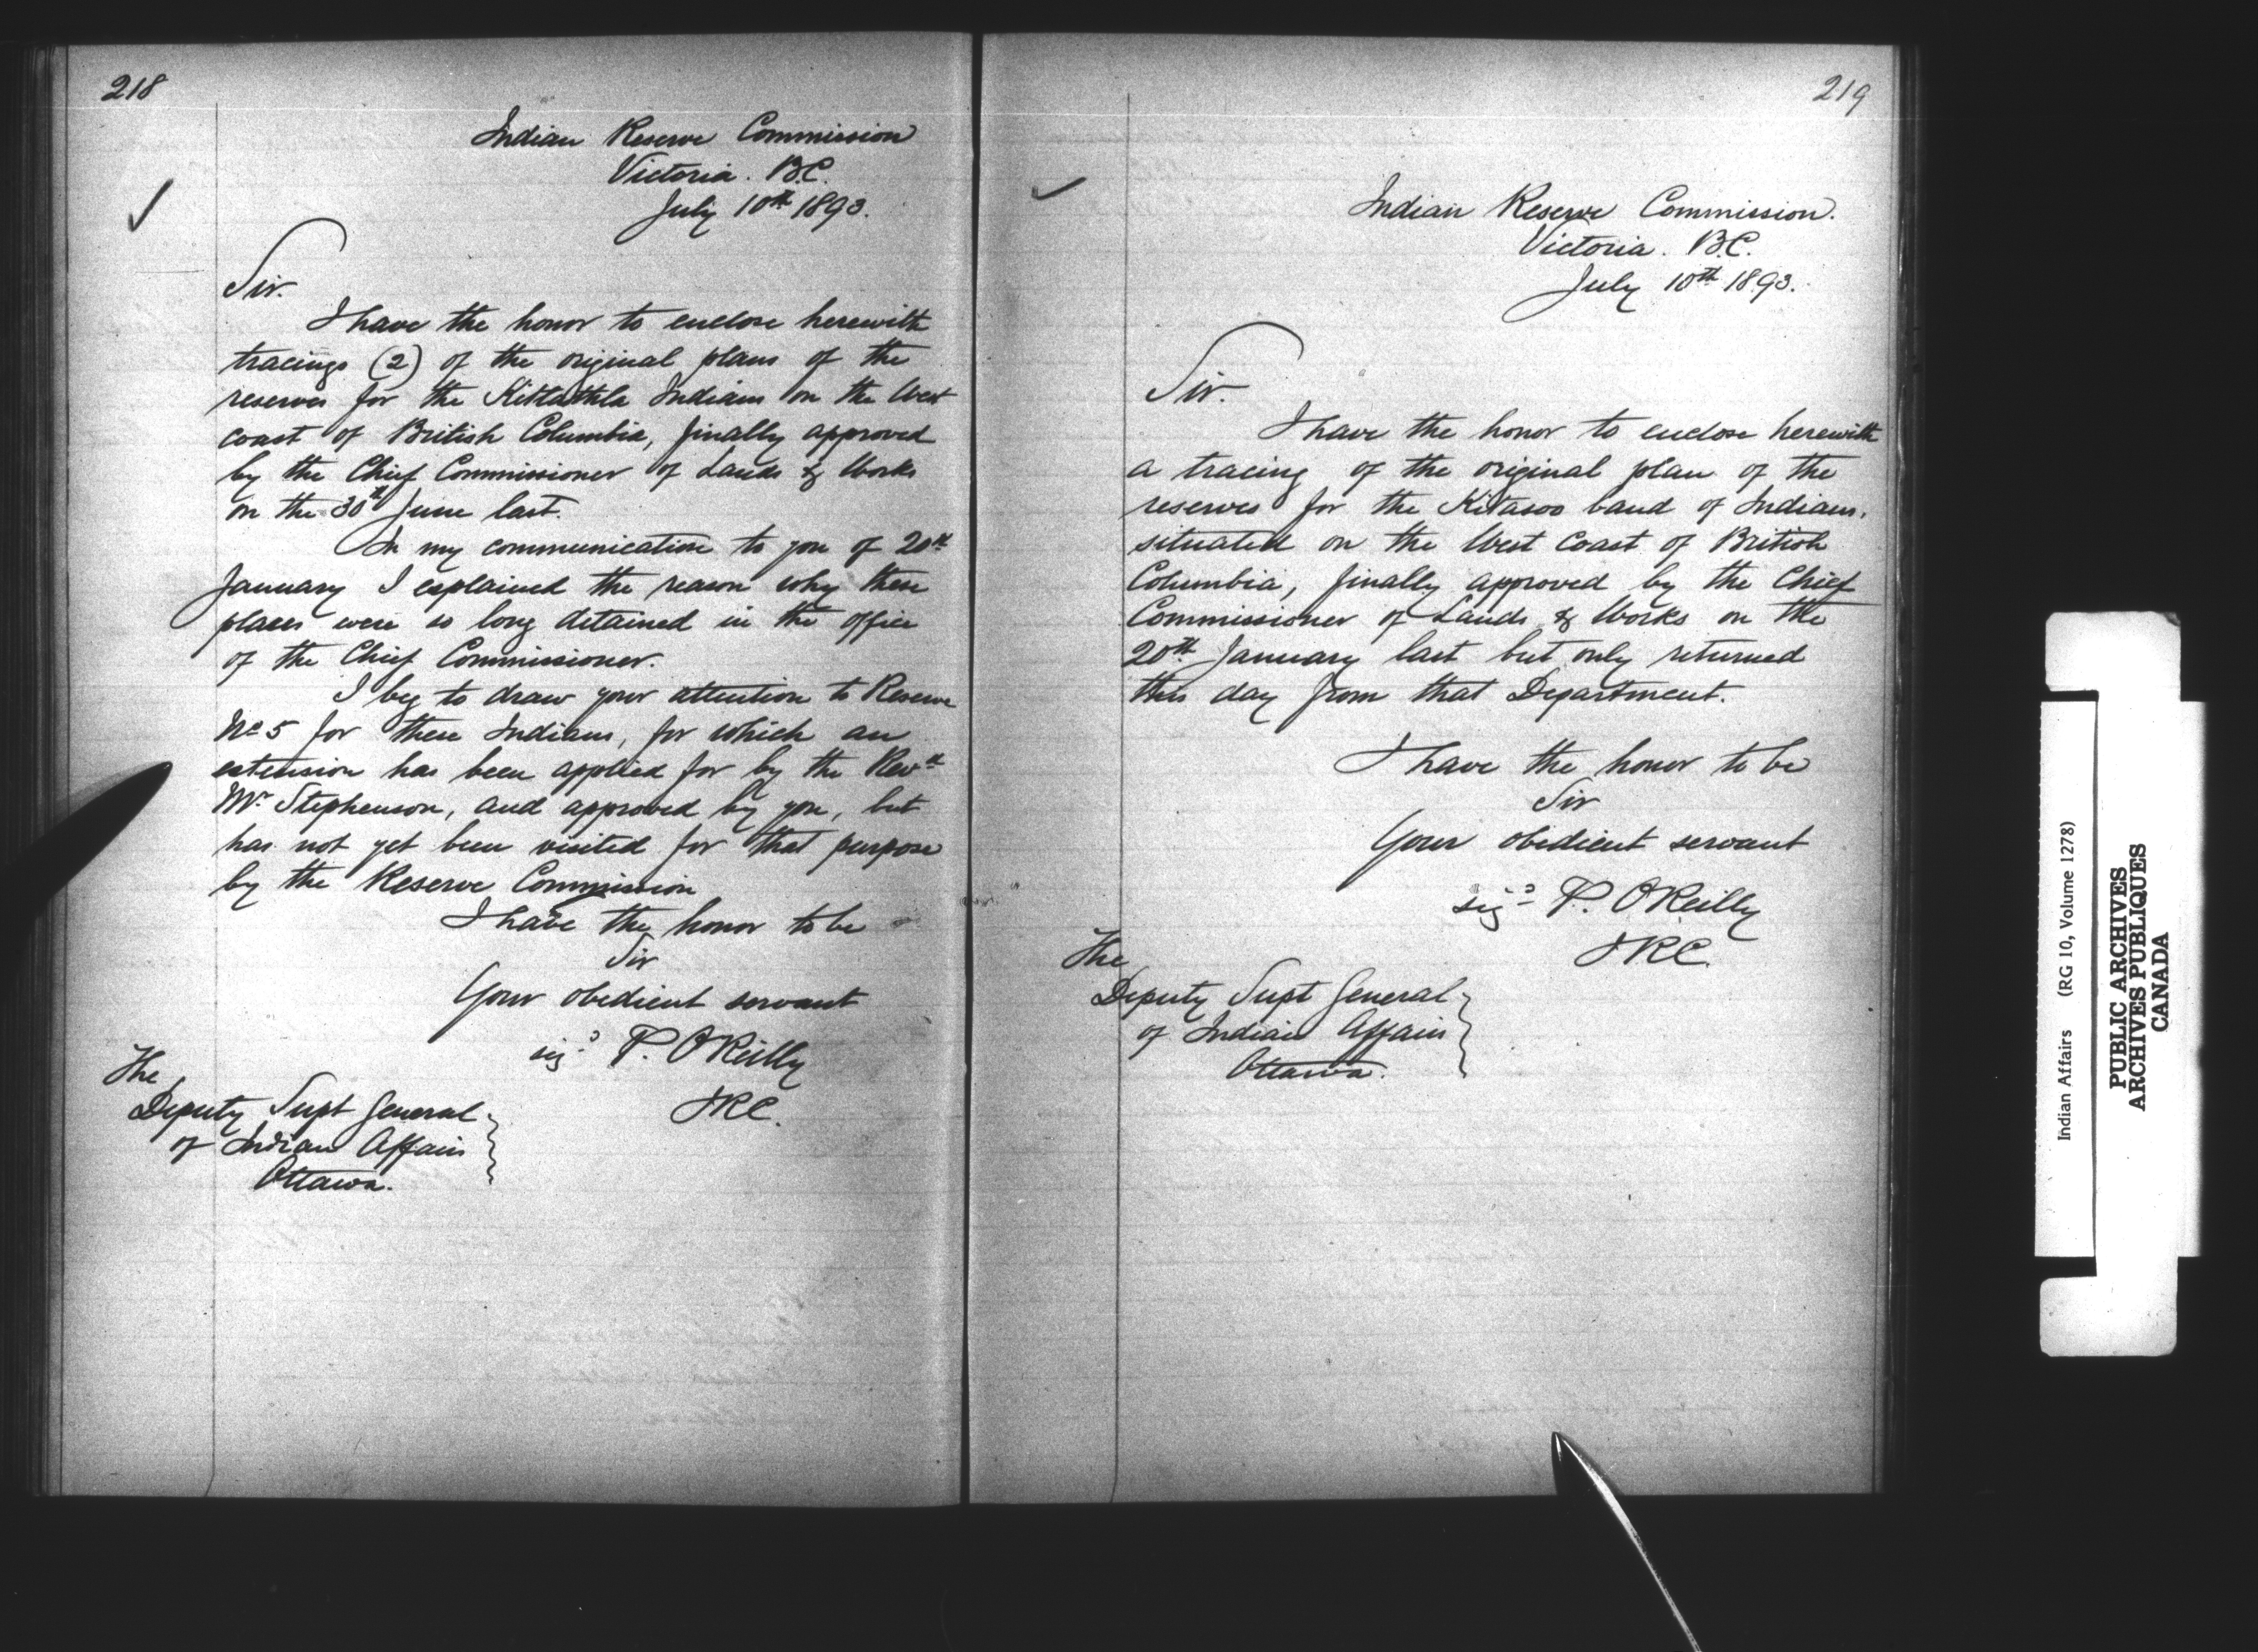 218
Indian Reserve Commission
Victoria. B.C.
July 10th 1893.
Sir.
I have the honor to enclose herewith
tracings (2) of the original plans of the
reserves for the Kitlathla Indians on the West
Coast of British Columbia, finally approved
by the Chief Commissioner of Lands & Works
on the 30th June last.
In my communication to you of 20th
January I explained the reason why these
places were so long detained in the office
of the Chief Commissioner.
I beg to draw your attention to Reserve
No 5 for these Indians, for which an
extension has been applied for by the Revd
Mr Stephenson, and approved by you, but
has not yet been visited for that purpose
by the Reserve Commission
I have the honor to be
Sir
Your obedient servant
sigd P. O'Reilly
I.R.C.
The
Deputy Supt General
of Indian Affairs
Ottawa.
219
Indian Reserve Commission.
Victoria. B.C.
July 10th 1893.
Sir.
I have the honor to enclose herewith
a tracing of the original plan of the
reserves for the Kitasoo band of Indians,
situated on the West Coast of British
Columbia, finally approved by the Chief
Commissioner of Lands & Works on the
20th January last but only returned
this day from that Department.
I have the honor to be
Sir
Your obedient servant
sigd P. O'Reilly
I.R.C.
The
Deputy Supt General
of Indian Affairs
Ottawa.
Indian Affairs (RG 10, Volume 1278)
PUBLIC ARCHIVES
ARCHIVES PUBLIQUES
CANADA